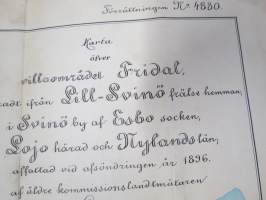 Förrättningen No 4880.
Karta
öfver
villaområdet Fridal,
från Lill-Svinö frälse hemman,
i Svinö by af Esbo socken,
Lojo härad och Nylands län;
affattad vid afsöndringen år 1896.
af äldre kommissionslandtmätaren